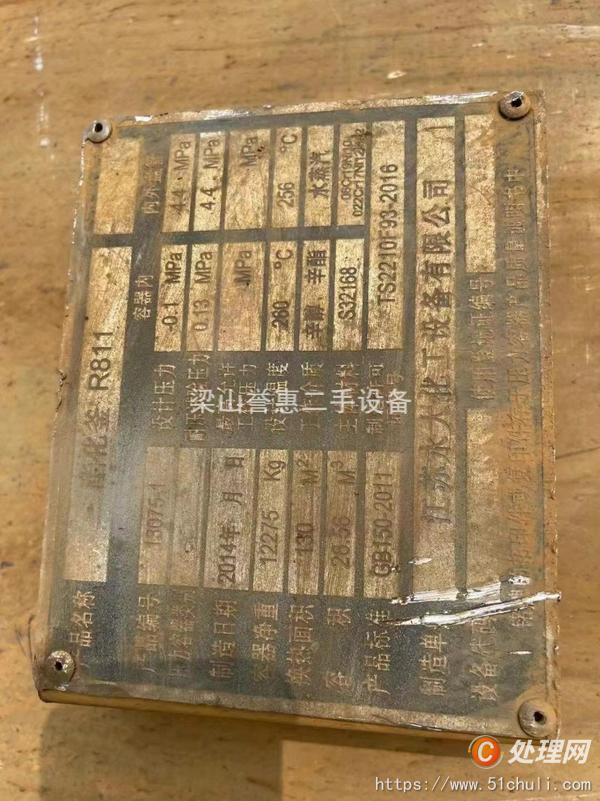 产品名称 酯化釜 R811
产品编号 13075-1 容器内 内外盘管
设计压力 -0.1 MPa 4.4 MPa
耐压试验压力 0.13 MPa 4.4 MPa
制造日期 2014年 月 日 最高允许工作压力 MPa MPa
容器净重 12275 Kg 设计温度 260 ℃ 256 ℃
换热面积 130 M² 工作介质 辛醇、辛酯 水蒸汽
容 积 26.56 M³ 主体材料 S32168
产品标准 GB150-2011 制造许可证编号 TS2210F93-2016
制造单位 江苏永大化工设备有限公司
设备代码 使用登记证编号
梁山誉惠二手设备
C 处理网
https://www.51chuli.com/